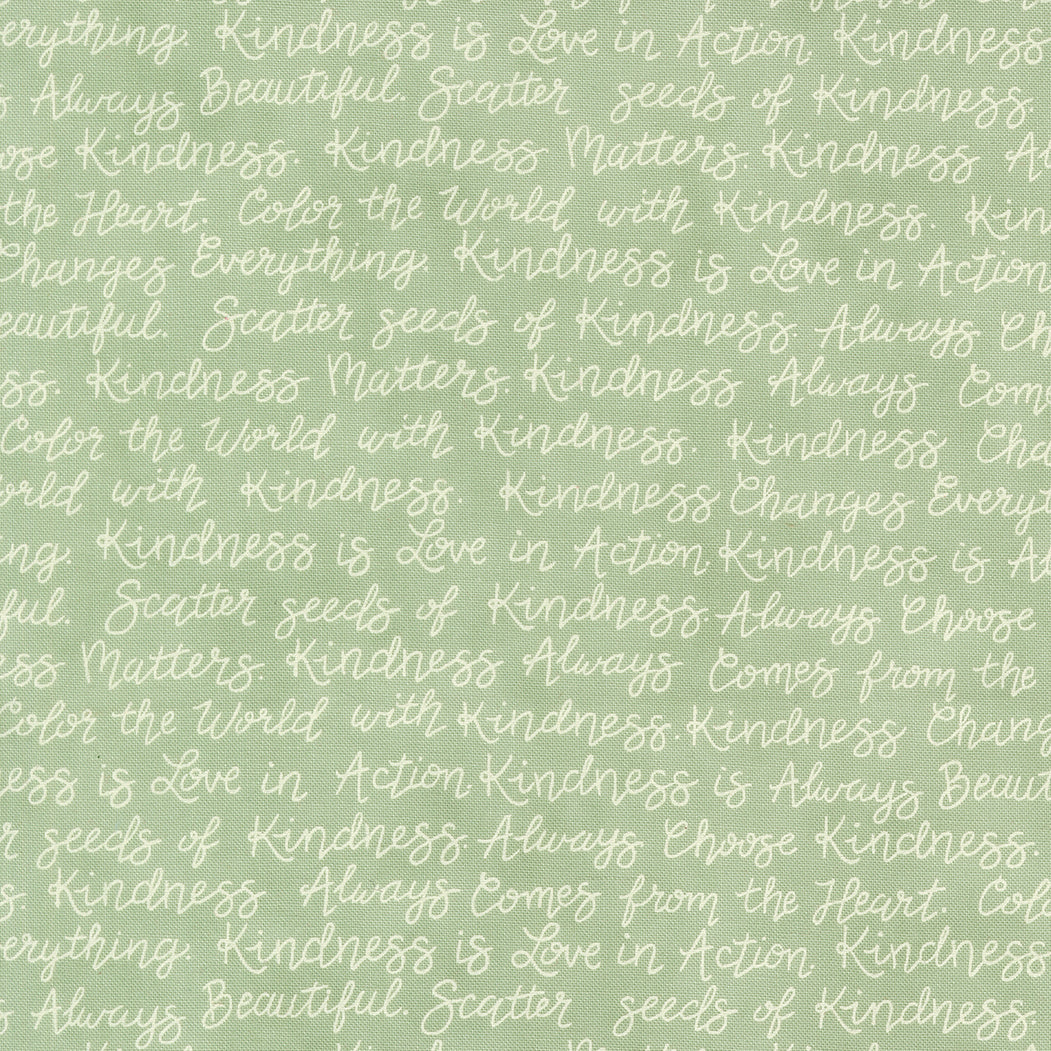 erything. Kindness is Love in Action. Kindness
Always Beautiful. Scatter seeds of Kindness.
ose Kindness. Kindness Matters. Kindness A
the Heart. Color the World with Kindness. Kin
Changes Everything. Kindness is Love in Action
eautiful. Scatter seeds of Kindness Always Ch
ss. Kindness Matters. Kindness Always Com
Color the World with Kindness. Kindness Cha
orld with Kindness. Kindness Changes Everyt
ng. Kindness is Love in Action. Kindness is A
ful. Scatter seeds of Kindness. Always Choose
ess Matters. Kindness Always Comes from the
Color the World with Kindness. Kindness Chang
ess is Love in Action. Kindness is Always Beaut
r seeds of Kindness. Always Choose Kindness.
s. Kindness Always Comes from the Heart. Col
erything. Kindness is Love in Action. Kindness
Always Beautiful. Scatter seeds of Kindness.